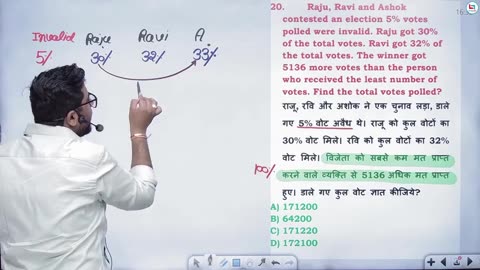 Invalid Raju Ravi A
5% 30% 32% 33%
20. Raju, Ravi and Ashok
contested an election 5% votes
polled were invalid. Raju got 30%
of the total votes. Ravi got 32% of
the total votes. The winner got
5136 more votes than the person
who received the least number of
votes. Find the total votes polled?
राजू, रवि और अशोक ने एक चुनाव लड़ा, डाले
गए 5% वोट अवैध थे। राजू को कुल वोटों का
30% वोट मिले। रवि को कुल वोटों का 32%
वोट मिले। विजेता को सबसे कम मत प्राप्त
100%
करने वाले व्यक्ति से 5136 अधिक मत प्राप्त
हुए। डाले गए कुल वोट ज्ञात कीजिये?
A) 171200
B) 64200
C) 171220
D) 172100